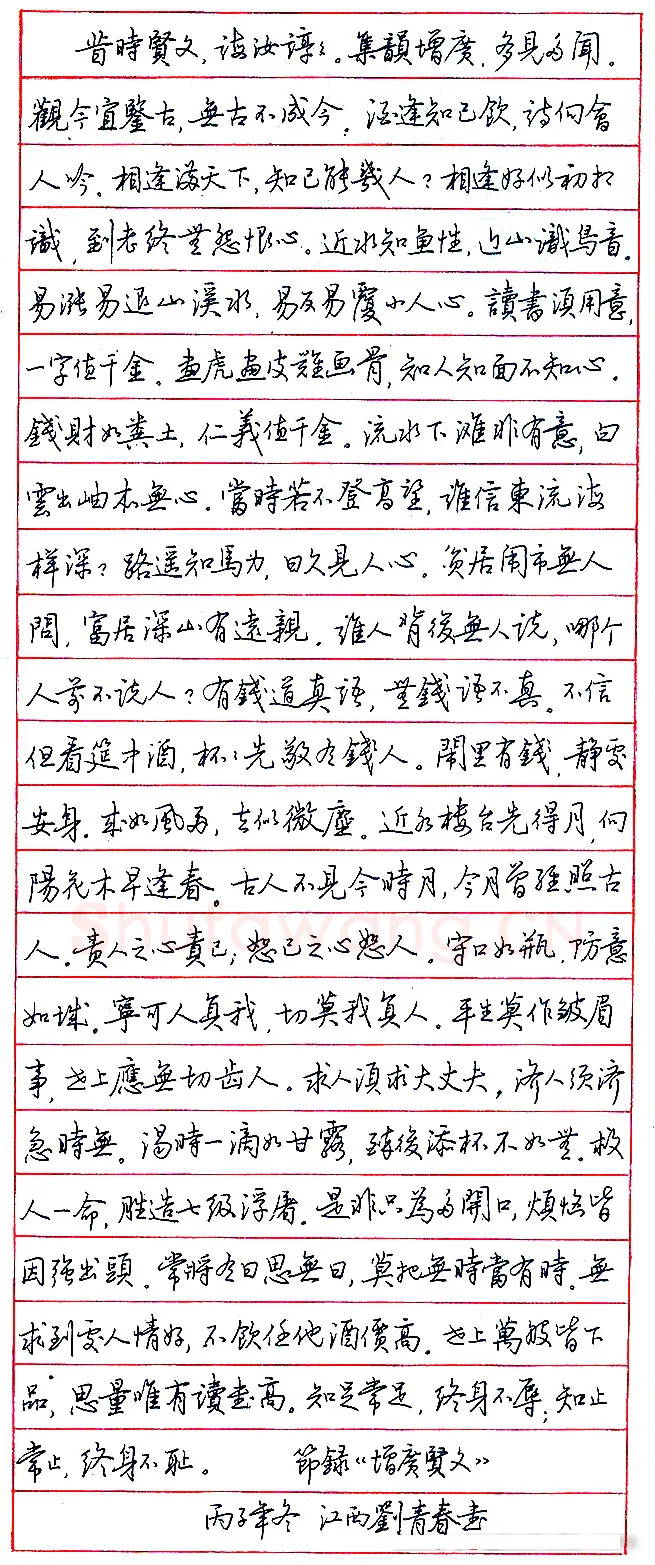 昔時賢文，誨汝諄〻。集韻增廣，多見多聞。
觀今宜鑒古，無古不成今。酒逢知己飲，詩向會
人吟。相逢滿天下，知己能幾人？相逢好似初相
識，到老終無怨恨心。近水知魚性，近山識鳥音。
易漲易退山溪水，易反易覆小人心。讀書須用意，
一字值千金。畫虎畫皮難画骨，知人知面不知心。
錢財如糞土，仁義值千金。流水下灘非有意，白
雲出岫本無心。當時若不登高望，誰信東流海
样深？路遥知馬力，日久見人心。貧居鬧市無人
問，富居深山有遠親。誰人背後無人说，哪个
人前不说人？有錢道真語，無錢語不真。不信
但看筵中酒，杯〻先敬有錢人。鬧里有錢，靜處
安身。來如風雨，去似微塵。近水樓台先得月，向
陽花木早逢春。古人不見今時月，今月曾經照古
人。責人之心責己；恕己之心恕人。守口如瓶，防意
如城。寧可人負我，切莫我負人。平生莫作皺眉
事，世上應無切齒人。求人須求大丈夫，濟人须济
急時無。渴時一滴如甘露，醉後添杯不如無。救
人一命，胜造七级浮屠。是非只為多開口，煩惱皆
因強出頭。常將有日思無日，莫把無時當有時。無
求到處人情好，不飲任他酒價高。世上萬般皆下
品，思量唯有讀書高。知足常足，终身不辱；知止
常止，终身不耻。 節録《增廣賢文》
丙子年冬 江西劉青春書
Shufawang.CN